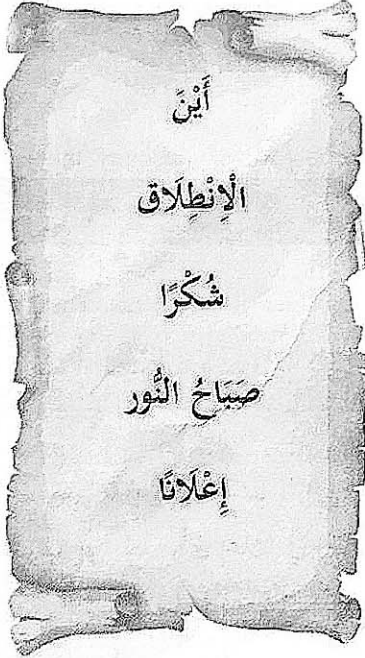 أَيْنَ
الْاِنْطِلَاق
شُكْرًا
صَبَاحُ النُّور
إِعْلَانًا